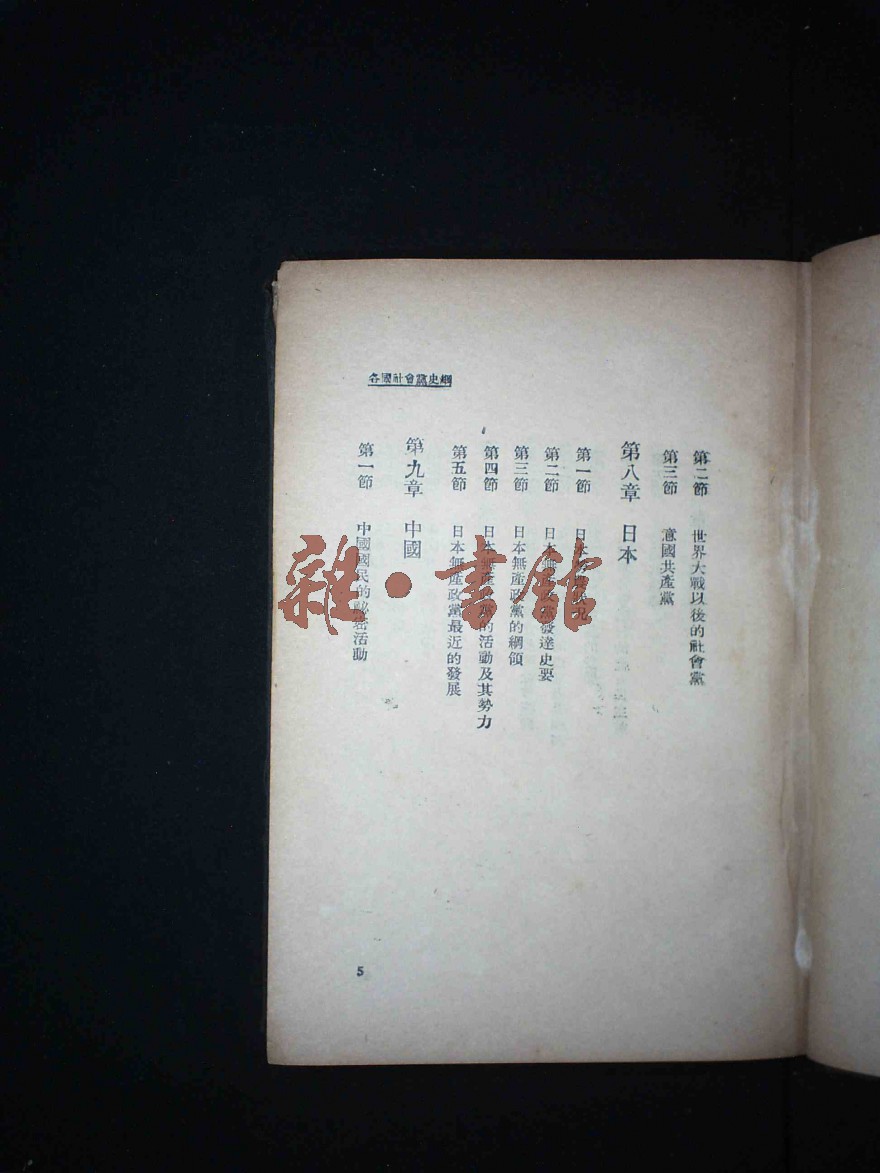 各國社會黨史綱
第二節 世界大戰以後的社會黨
第三節 意國共產黨
第八章 日本
第一節 日本
第二節 日本無產政黨發達史要
第三節 日本無產政黨的綱領
第四節 日本無產政黨的活動及其勢力
第五節 日本無產政黨最近的發展
第九章 中國
第一節 中國國民的祕密活動
5
雜·書館